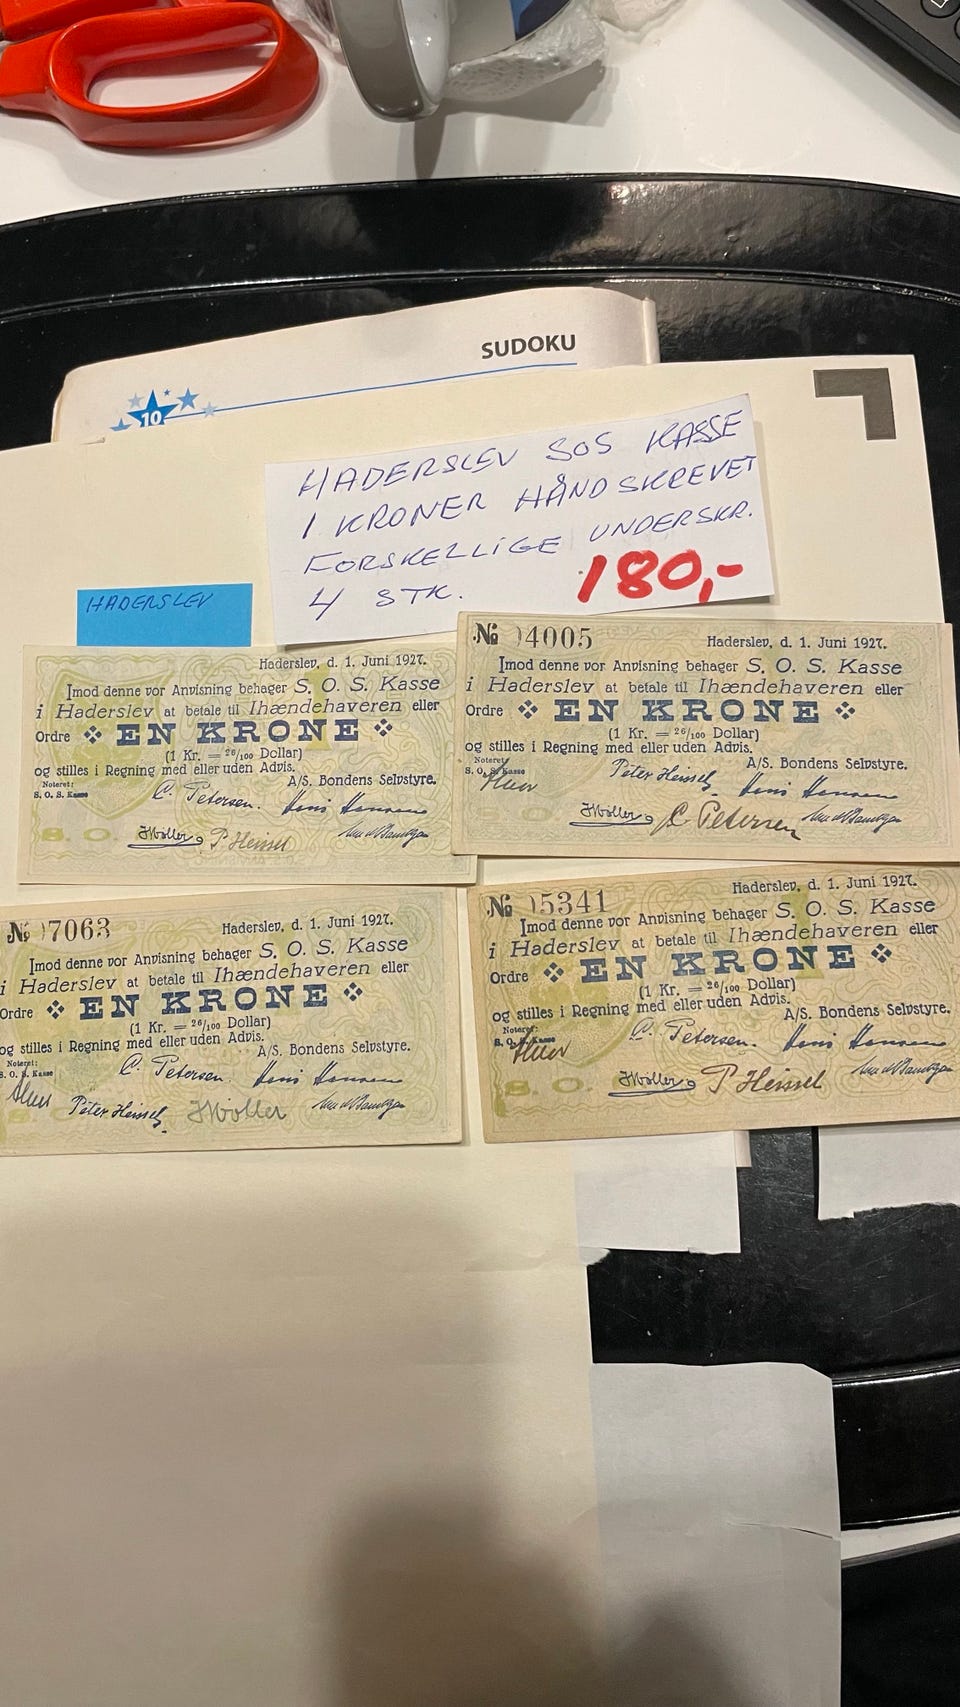 SUDOKU
10
HADERSLEV SOS KASSE
1 KRONER HÅNDSKREVET
FORSKELLIGE UNDERSKR.
4 STK. 180,-
HADERSLEV
Haderslev, d. 1. Juni 1927.
Imod denne vor Anvisning behager S. O. S. Kasse
i Haderslev at betale til Ihændehaveren eller
Ordre EN KRONE
(1 Kr. = 26/100 Dollar)
og stilles i Regning med eller uden Advis.
Noteret:
S. O. S. Kasse
A/S. Bondens Selvstyre.
C. Petersen. Hans Hansen
JMøller P Heissel
S. O.
№ 4005
Haderslev, d. 1. Juni 1927.
Imod denne vor Anvisning behager S. O. S. Kasse
i Haderslev at betale til Ihændehaveren eller
Ordre EN KRONE
(1 Kr. = 26/100 Dollar)
og stilles i Regning med eller uden Advis.
Noteret:
S. O. S. Kasse
A/S. Bondens Selvstyre.
Peter Heissel. Hans Hansen
JMøller C Petersen
№ 7063
Haderslev, d. 1. Juni 1927.
Imod denne vor Anvisning behager S. O. S. Kasse
i Haderslev at betale til Ihændehaveren eller
Ordre EN KRONE
(1 Kr. = 26/100 Dollar)
og stilles i Regning med eller uden Advis.
Noteret:
S. O. S. Kasse
A/S. Bondens Selvstyre.
C. Petersen. Hans Hansen
Peter Heissel JMøller
№ 5341
Haderslev, d. 1. Juni 1927.
Imod denne vor Anvisning behager S. O. S. Kasse
i Haderslev at betale til Ihændehaveren eller
Ordre EN KRONE
(1 Kr. = 26/100 Dollar)
og stilles i Regning med eller uden Advis.
Noteret:
S. O. S. Kasse
A/S. Bondens Selvstyre.
C. Petersen. Hans Hansen
JMøller P Heissel
S. O.